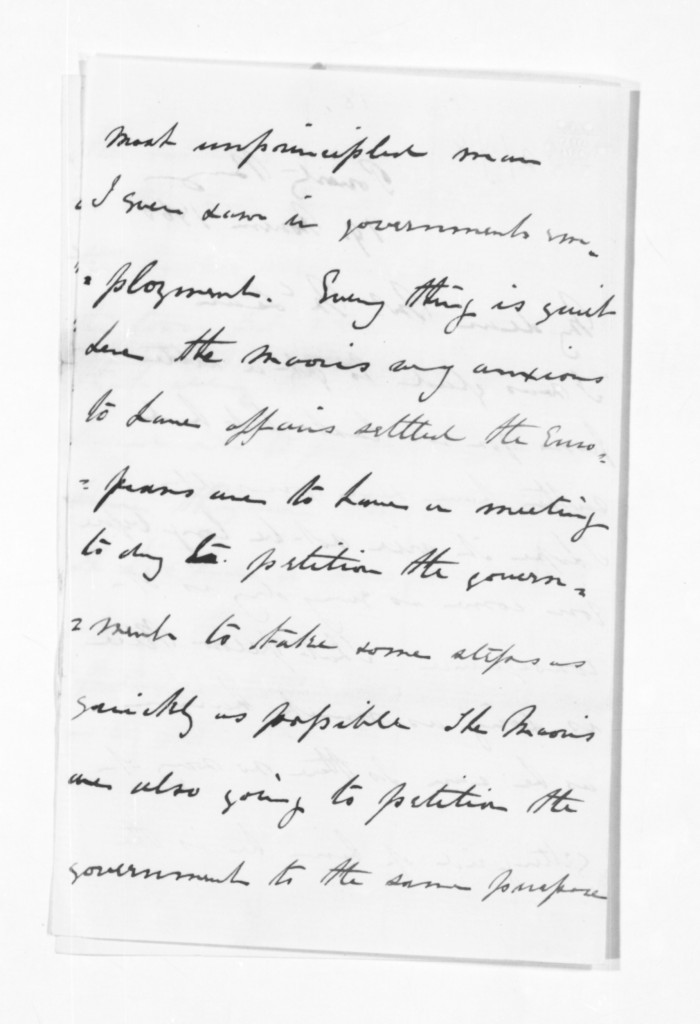 most unprincipled man
I ever saw in governments em-
=ployment. Every thing is quiet
here the maoris very anxious
to have affairs settled the Euro=
=peans are to have a meeting
to day to petition the govern=
=ment to take some steps as
quickly as possible The Maoris
are also going to petition the
government to the same purpose